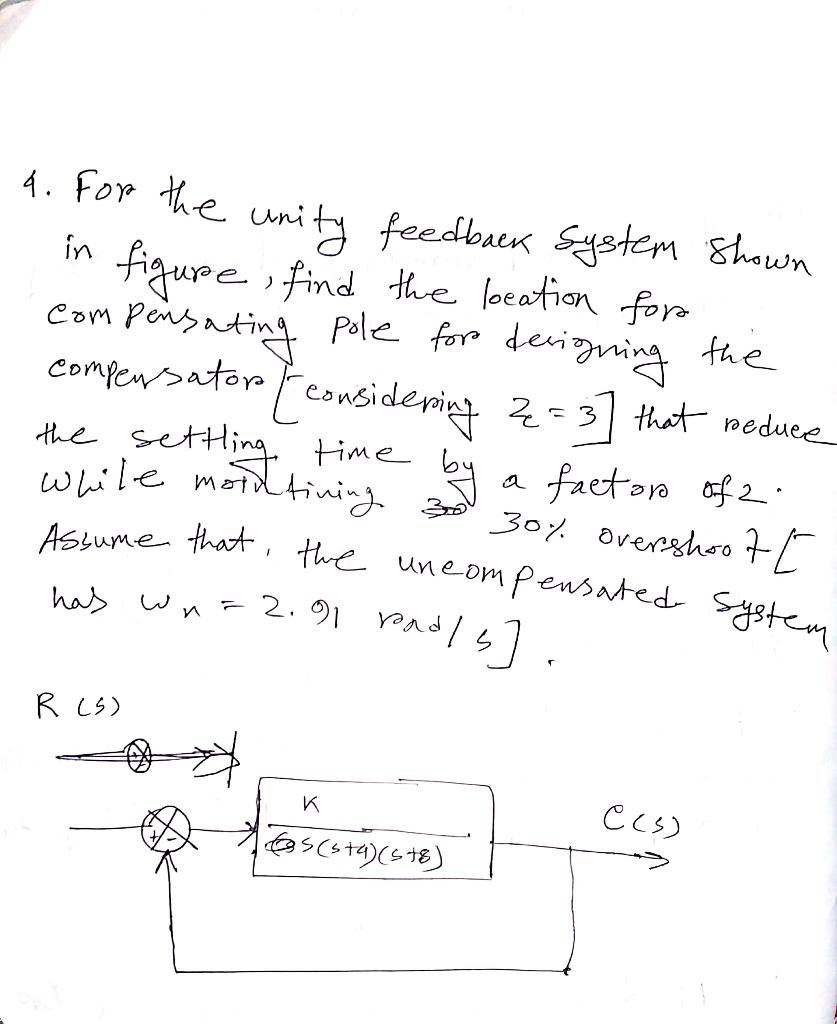 4. For the unity feedback system shown
in figure, find the location for
compensating pole for designing the
compensator [considering Zc = 3] that reduce
the settling time by a factor of 2.
while maintining 30% overshoot [
Assume that, the uncompensated system
has wn = 2.91 rad/s].
R(s)
K
C(s)
+
-
s(s+4)(s+8)